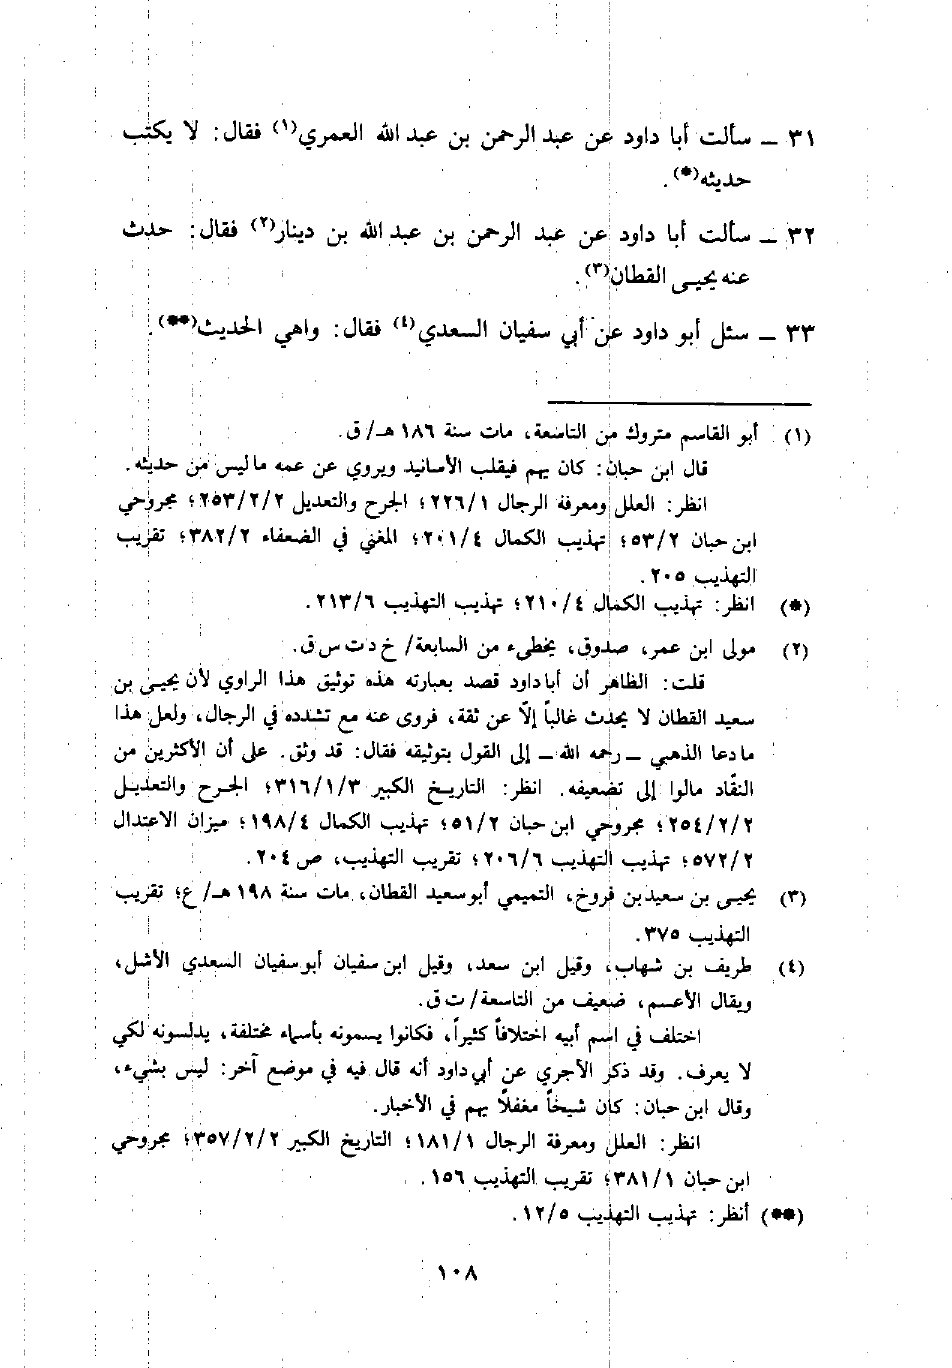 ٣١ ــ سألت أبا داود عن عبد الرحمن بن عبد الله العمري(١) فقال: لا يكتب
حديثه(*).
٣٢ ــ سألت أبا داود عن عبد الرحمن بن عبد الله بن دينار(٢) فقال: حدث
عنه يحيى القطان(٣).
٣٣ ــ سئل أبو داود عن أبي سفيان السعدي(٤) فقال: واهي الحديث(**).
(١) أبو القاسم متروك من التاسعة، مات سنة ١٨٦ هـ/ ق.
قال ابن حبان: كان يهم فيقلب الأسانيد ويروي عن عمه ما ليس من حديثه.
انظر: العلل ومعرفة الرجال ٢٢٦/١؛ الجرح والتعديل ٢٥٣/٢/٢؛ مجروحي
ابن حبان ٥٣/٢؛ تهذيب الكمال ٢٠١/٤؛ المغني في الضعفاء ٣٨٢/٢؛ تقريب
التهذيب ٢٠٥.
(*) انظر: تهذيب الكمال ٢١٠/٤؛ تهذيب التهذيب ٢١٣/٦.
(٢) مولى ابن عمر، صدوق، يخطىء من السابعة/ خ د ت س ق.
قلت: الظاهر أن أبا داود قصد بعبارته هذه توثيق هذا الراوي لأن يحيى بن
سعيد القطان لا يحدث غالباً إلّا عن ثقة، فروى عنه مع تشدده في الرجال، ولعل هذا
ما دعا الذهبي ــ رحمه الله ــ إلى القول بتوثيقه فقال: قد وثق. على أن الأكثرين من
النقّاد مالوا إلى تضعيفه. انظر: التاريخ الكبير ٣١٦/١/٣؛ الجرح والتعديل
٢٥٤/٢/٢؛ مجروحي ابن حبان ٥١/٢؛ تهذيب الكمال ١٩٨/٤؛ ميزان الاعتدال
٥٧٢/٢؛ تهذيب التهذيب ٢٠٦/٦؛ تقريب التهذيب، ص ٢٠٤.
(٣) يحيى بن سعيد بن فروخ، التميمي أبو سعيد القطان، مات سنة ١٩٨ هـ/ ع؛ تقريب
التهذيب ٣٧٥.
(٤) طريف بن شهاب، وقيل ابن سعد، وقيل ابن سفيان أبو سفيان السعدي الأشل،
ويقال الأعسم، ضعيف من التاسعة/ ت ق.
اختلف في اسم أبيه اختلافاً كثيراً، فكانوا يسمونه بأسماء مختلفة، يدلسونه لكي
لا يعرف. وقد ذكر الآجري عن أبي داود أنه قال فيه في موضع آخر: ليس بشيء،
وقال ابن حبان: كان شيخاً مغفلًا يهم في الأخبار.
انظر: العلل ومعرفة الرجال ١٨١/١؛ التاريخ الكبير ٣٥٧/٢/٢؛ مجروحي
ابن حبان ٣٨١/١؛ تقريب التهذيب ١٥٦.
(**) أنظر: تهذيب التهذيب ١٢/٥.
١٠٨